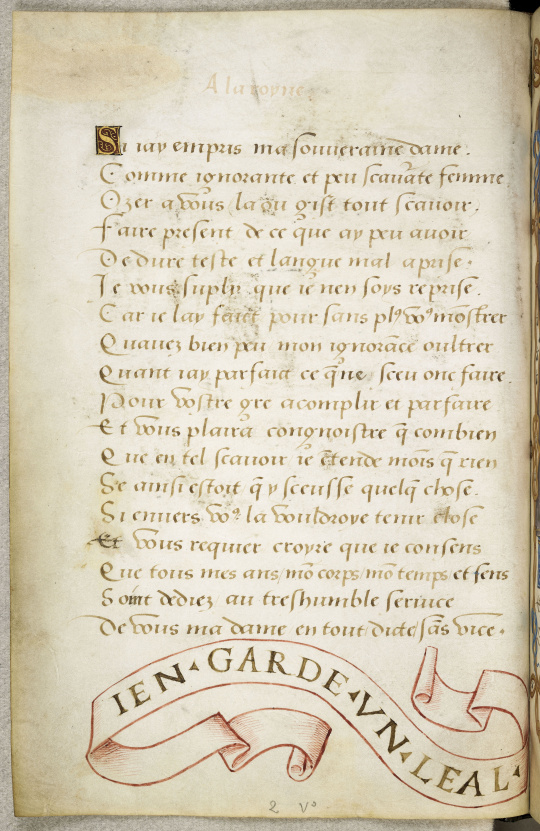 A la royne
Si iay empris ma souueraine dame.
Comme ignorante et peu scauāte femme
Ozer a vous / la ou gist tout scauoir.
Faire present de ce que ay peu auoir
De dure teste et langue mal aprise.
Je vous suply que ie nen soys reprise.
Car ie lay faict pour sans plꝰ voꝰ mōstrer
Quauez bien peu mon ignorāce oultrer
Quant iay parfaict ce q̄ ne sceu onc faire.
Pour vostre gre acomplir et parfaire
Et vous plaira congnoistre q̄ combien
Que en tel scauoir ie ētende mois q̄ rien
Se ainsi estoit q̄ y sceusse quelq̄ chose.
Si enuers voꝰ la vouldroye tenir close
Et vous requier croyre que ie consens
Que tous mes ans / mō corps / mō temps et sens
Soint dediez au treshumble seruice
De vous ma dame en tout dicte / sās vice.
IEN GARDE VN LEAL
2 vº